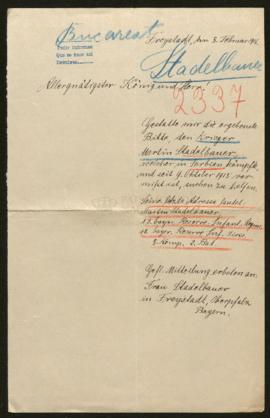 Bucarest
Freystadt, den 3. Februar 1916.
Pedir informes
Stadelbauer
Allergnädigster König und Herr!
2337
Gestatte mir die ergebenste
Bitte, den Krieger
Martin Stadelbauer
welcher in Serbien kämpfte
und seit 9. Oktober 1915 ver-
mißt ist, suchen zu helfen.
Seine letzte Adresse lautet
Martin Stadelbauer
12. bayer. Reserve Infant. Regim.
12. bayer. Reserve Inf. Divis
8. Komp. 2. Bat.
Gefl. Mitteilung erbeten an:
Frau Stadelbauer
in Freystadt, Oberpfalz
Bayern.